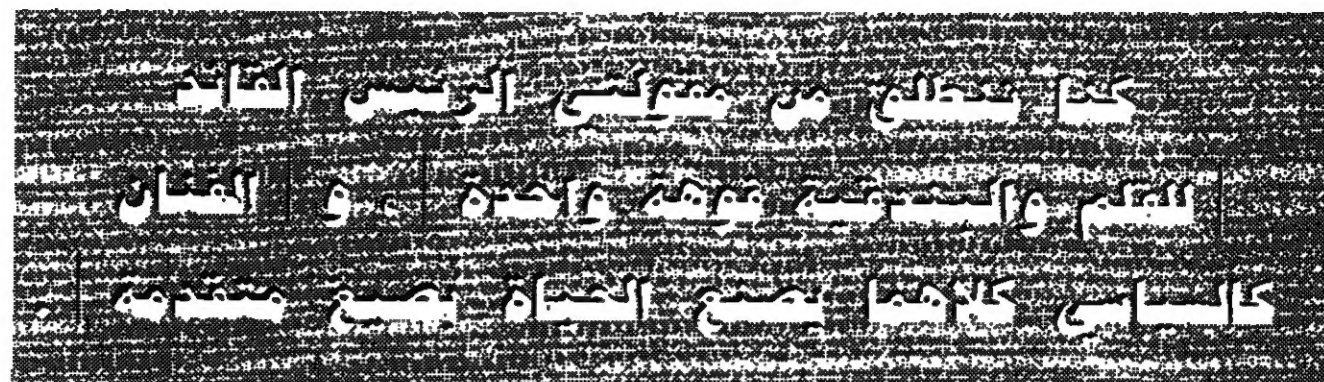 كنا ننطلق من مقولتي الرئيس القائد
| للقلم والبندقية فوهة واحدة | . و | الفنان
كالسياسي كلاهما يصنع الحياة بصيغ متقدمه | .